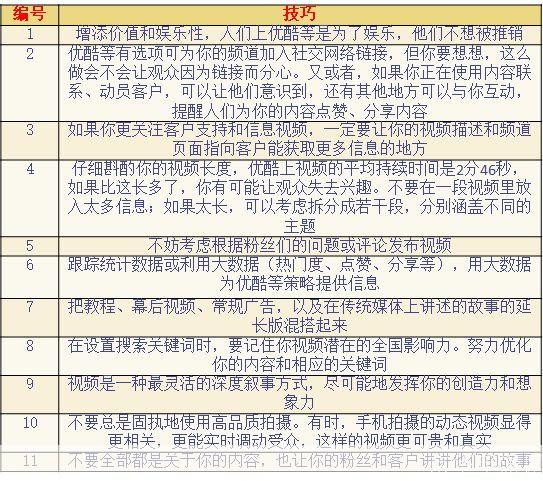 编号 技巧
1 增添价值和娱乐性，人们上优酷等是为了娱乐，他们不想被推销
2 优酷等有选项可为你的频道加入社交网络链接，但你要想想，这么
做会不会让观众因为链接而分心。又或者，如果你正在使用内容联
系、动员客户，可以让他们意识到，还有其他地方可以与你互动，
提醒人们为你的内容点赞、分享内容
3 如果你更关注客户支持和信息视频，一定要让你的视频描述和频道
页面指向客户能获取更多信息的地方
4 仔细斟酌你的视频长度，优酷上视频的平均持续时间是2分46秒，
如果比这长多了，你有可能让观众失去兴趣。不要在一段视频里放
入太多信息；如果太长，可以考虑拆分成若干段，分别涵盖不同的
主题
5 不妨考虑根据粉丝们的问题或评论发布视频
6 跟踪统计数据或利用大数据（热门度、点赞、分享等），用大数据
为优酷等策略提供信息
7 把教程、幕后视频、常规广告，以及在传统媒体上讲述的故事的延
长版混搭起来
8 在设置搜索关键词时，要记住你视频潜在的全国影响力。努力优化
你的内容和相应的关键词
9 视频是一种最灵活的深度叙事方式，尽可能地发挥你的创造力和想
象力
10 不要总是固执地使用高品质拍摄。有时，手机拍摄的动态视频显得
更相关，更能实时调动受众，这样的视频更可贵和真实
11 不要全部都是关于你的内容，也让你的粉丝和客户讲讲他们的故事